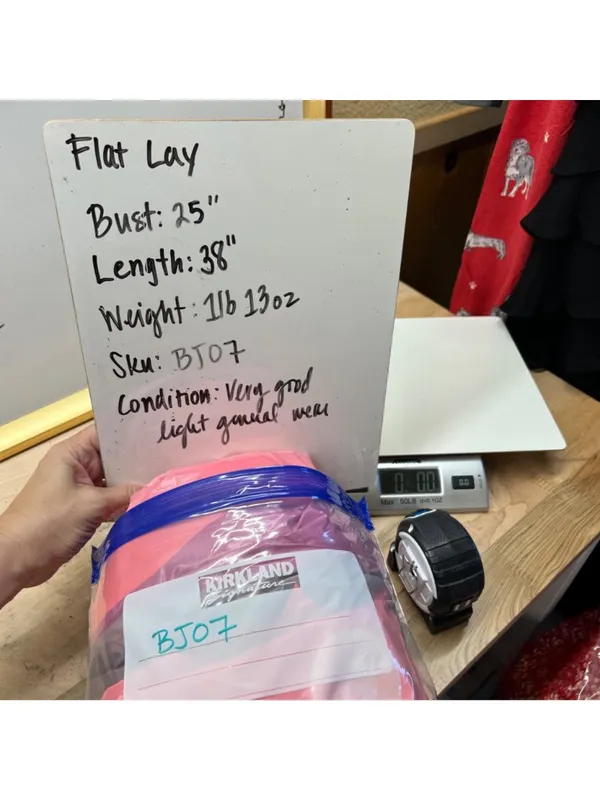 Flat Lay
Bust: 25"
Length: 38"
Weight: 1lb 13oz
Sku: BJ07
Condition: Very good
light general wear
0 00
0.0
Max 50LB d=0.1OZ
KIRKLAND
Signature
BJ07